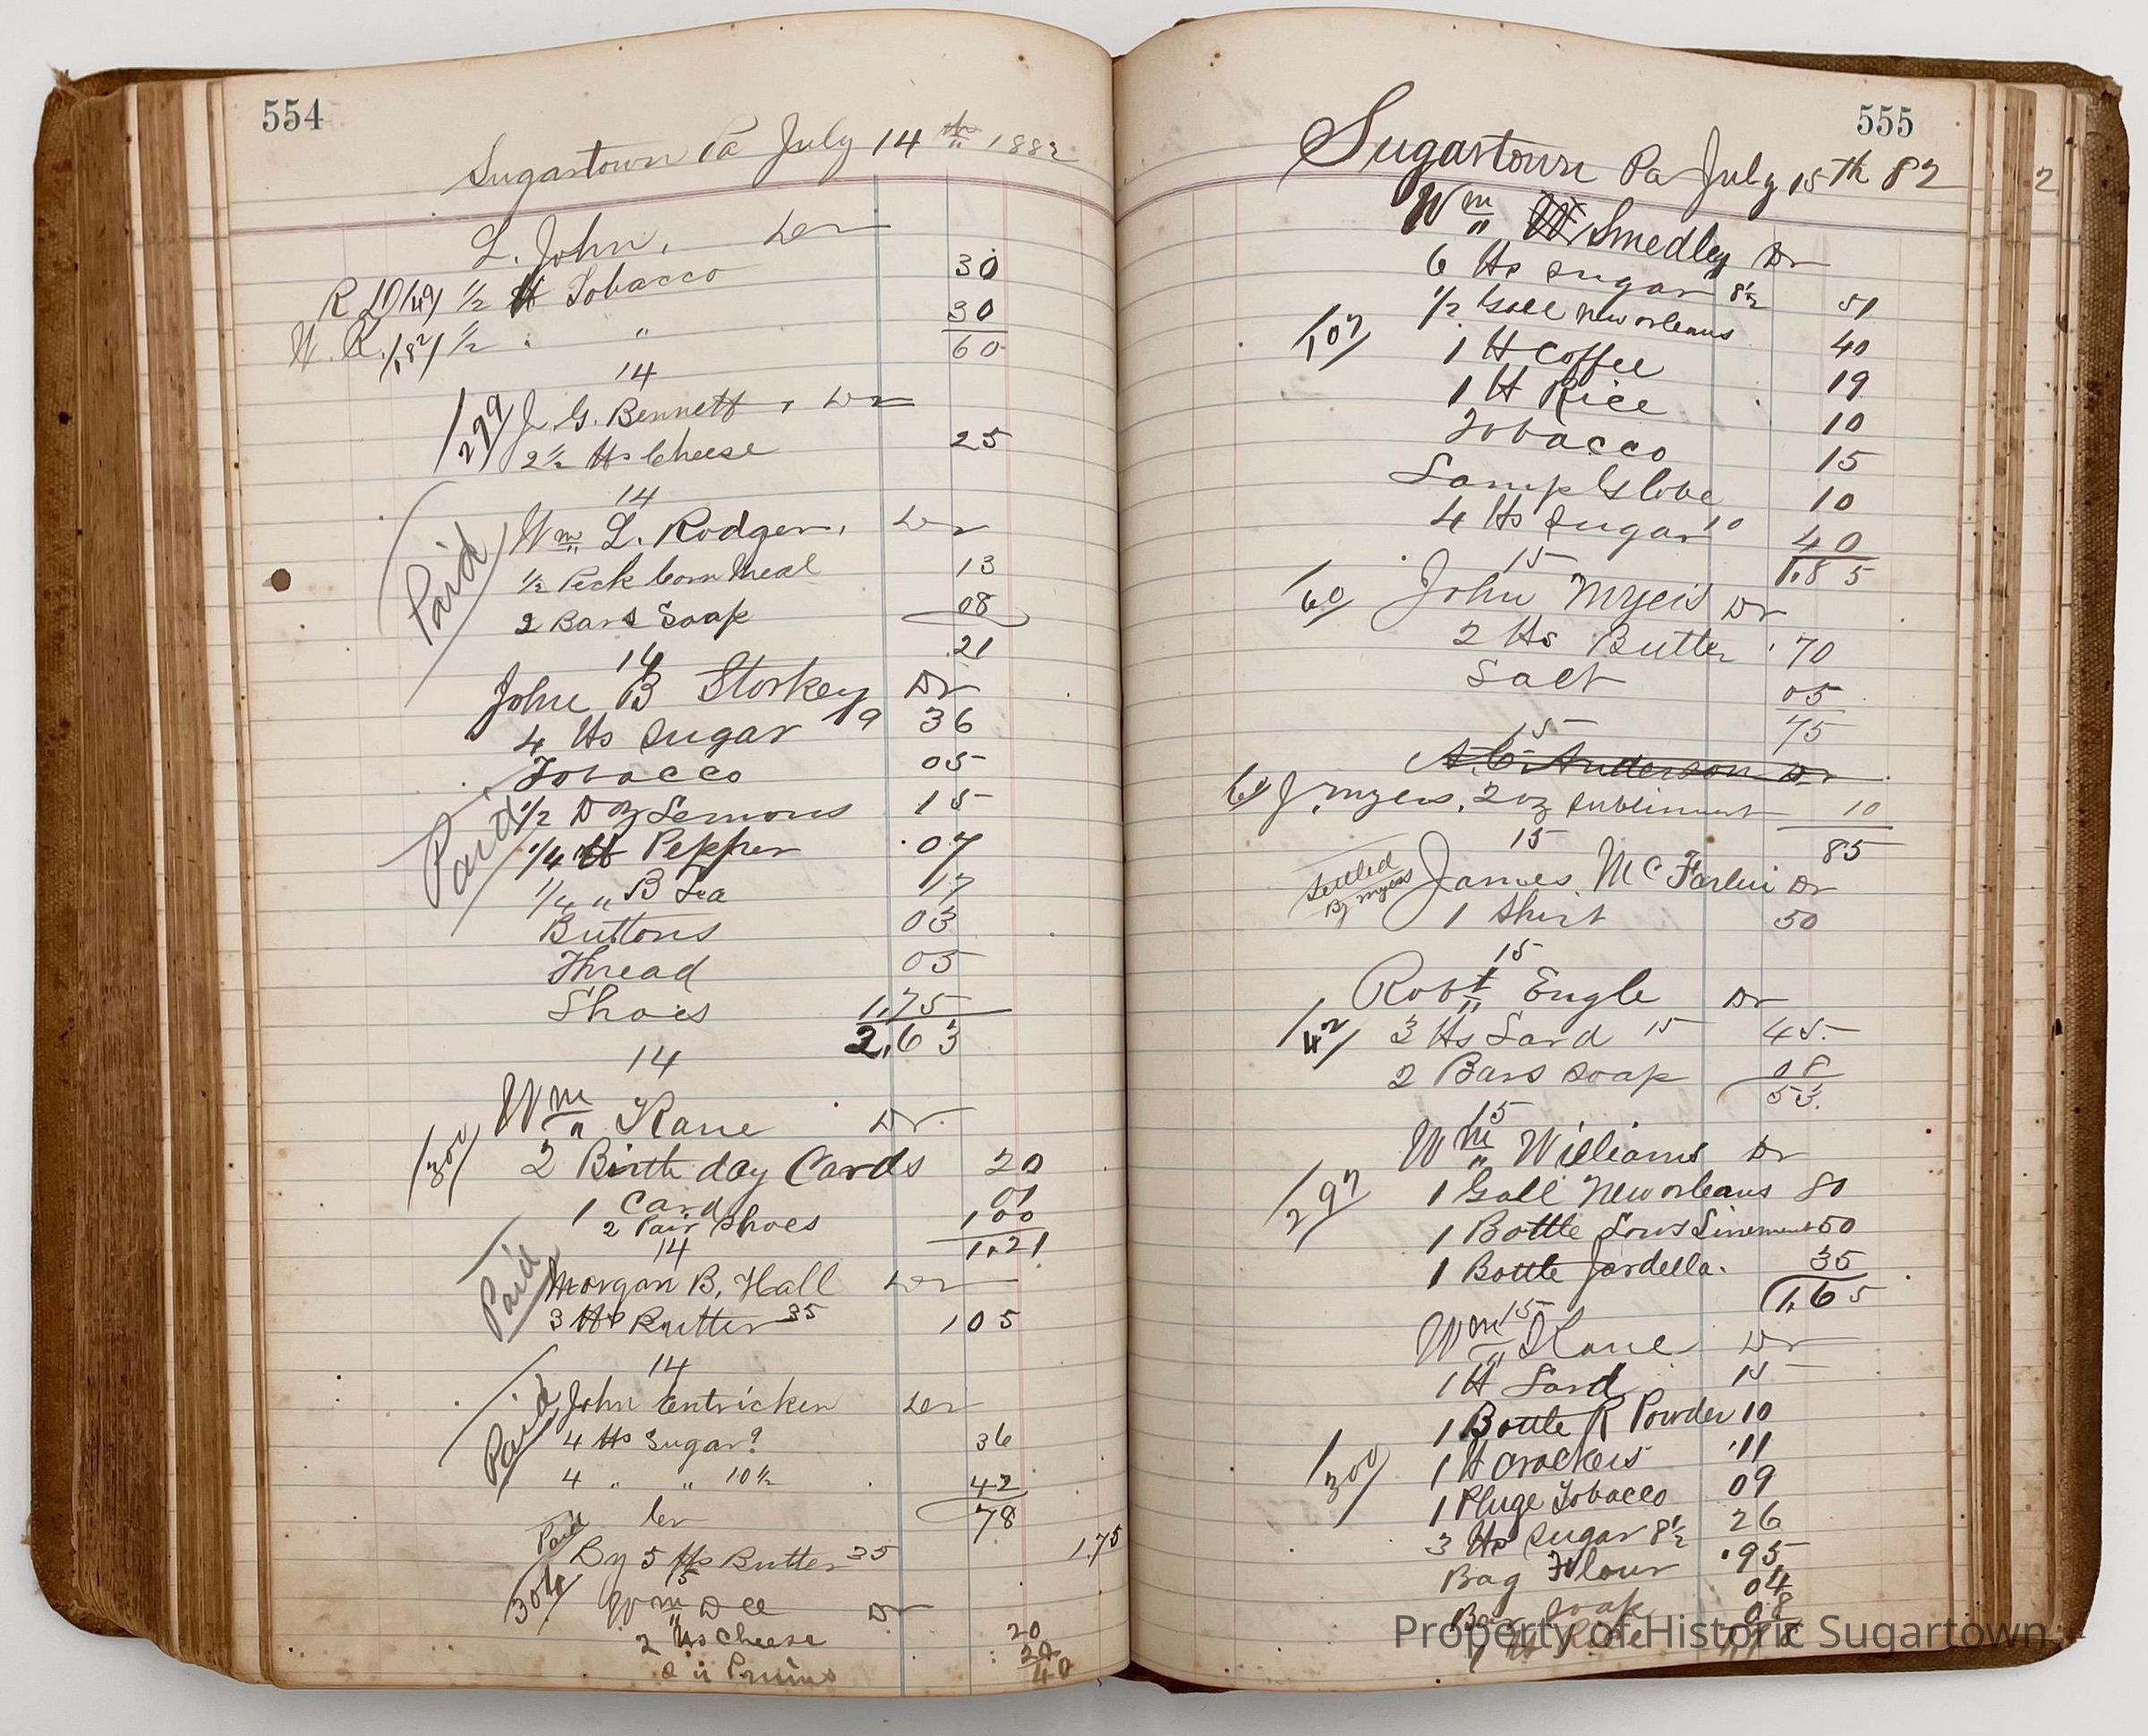 554
Sugartown Pa July 14th 1882
L. John, Dr
1/2 lb Tobacco 30
1/2 " " 30
60
14
299 J. G. Bennett, Dr
2 1/2 lbs Cheese 25
14
Paid Wm L. Rodger, Dr
1/2 Peck Corn Meal 13
2 Bars Soap 08
21
14
John B Storkey Dr
4 lbs Sugar 9 36
Tobacco 05
Paid 1/2 Doz Lemons 15
1/4 lb Pepper 07
1/4 " B Tea 17
Buttons 03
Thread 05
Shoes 1.75
2.63
14
Wm Kane Dr
300 2 Birth day Cards 20
1 Card 01
2 Pair Shoes 1 00
14 1.21
Paid Morgan B. Hall Dr
3 lbs Butter 35 1 05
14
Paid John Entricken Dr
4 lbs Sugar 9 36
4 " " 10 1/2 42
Cr 78
Paid By 5 lbs Butter 35 1.75
15
304 Wm Dee Dr
2 lbs Cheese 20
2 " Pruins 20
40
555
Sugartown Pa July 15th 82
Wm W Smedley Dr
6 lbs Sugar 8 1/2 51
1/2 Gall New orleans 40
107 1 lb Coffee 19
1 lb Rice 10
Tobacco 15
Lamp Globe 10
4 lbs Sugar 10 40
15 1.85
60 John Myers Dr
2 lbs Butter .70
Salt 05
15 75
A. C. Anderson Dr
60 J. Myers, 2 oz Subliment 10
15 85
Settled By Myers James McFarlin Dr
1 Shirt 50
15
Robt Engle Dr
42 3 lbs Lard 15 45
2 Bars Soap 08
53
15
Wm Williams Dr
297 1 Gall New orleans 80
1 Bottle Liniment 50
1 Bottle Jardella. 35
1.65
15
Wm Kane Dr
1 lb Lard 15
1 Bottle R Powder 10
300 1 lb Crackers .11
1 Pluge Tobacco 09
3 lbs Sugar 8 1/2 26
Bag Flour .95
Bar Soap 04
1 lb Rice 08
2
Property of Historic Sugartown